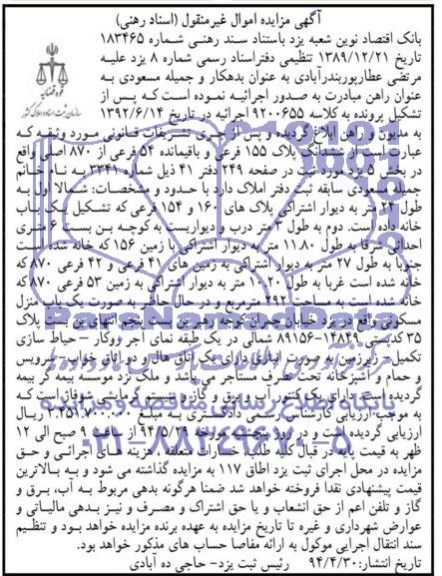 آگهی مزایده اموال غیرمنقول (اسناد رهنی)
بانک اقتصاد نوین شعبه یزد باستناد سند رهنی شماره ۱۸۳۴۶۵
تاریخ ۱۳۸۹/۱۲/۲۱ تنظیمی دفتراسناد رسمی شماره ۸ یزد علیه
مرتضی عطارپوربندرآبادی به عنوان بدهکار و جمیله مسعودی به
عنوان راهن مبادرت به صدور اجرائیه نموده است که پس از
تشکیل پرونده به کلاسه ۹۲۰۰۶۵۵ اجرائیه در تاریخ ۱۳۹۲/۶/۱۳
به مدیون و راهن ابلاغ گردیده و پس از اجری تشریفات قانونی مورد وثیقه که
عبارت است از ششدانگ پلاک ۱۵۵ فرعی و باقیمانده ۵۴ فرعی از ۸۷۰ اصلی واقع
در بخش ۵ یزد مورد ثبت در صفحه ۲۴۹ دفتر ۴۱ ذیل شماره ۳۳۴۱ به نام خانم
جمیله مسعودی سابقه ثبت دفتر املاک دارد با حدود و مشخصات: شمالا اول به
طول ۲۳ متر به دیوار اشتراکی پلاک های ۱۶۰ و ۱۵۴ فرعی که تشکیل یک باب
خانه داده است. دوم به طول ۳ متر درب و دیواریست به کوچه بن بست ۶ متری
احداثی شرقا به طول ۱۱.۸۰ متر به دیوار اشتراکی با زمین ۱۵۶ که خانه شده است
جنوبا به طول ۲۷ متر به دیوار اشتراکی به زمین های ۴۱ فرعی و ۴۲ فرعی ۸۷۰ که
خانه شده است غربا به طول ۱۰.۲۰ متر به دیوار اشتراکی به زمین ۵۳ فرعی ۸۷۰ که
خانه شده است به مساحت ۲۹۲ مترمربع و در حال حاضر به صورت یک باب منزل
مسکونی واقع در یزد خیابان کوچه بن بست پنجم انتهای بن بست پلاک
۳۵ کدپستی ۱۴۸۴۹-۸۹۱۵۶ شمالی در یک طبقه نمای آجر ووکار – حیاط سازی
تکمیل- زیرزمین به صورت انباری دارای یک اتاق هال و دو اتاق خواب- سرویس
و حمام و آشپزخانه تحت نظر مستاجر می باشد و ملک نزد موسسه بیمه گر بیمه
گردیده است. دارای یک کنتور آب و برق و گاز و سیستم گرمایشی شوفاژ است که
به موجب ارزیابی کارشناس رسمی دادگستری به مبلغ ریال
ارزیابی گردیده است و در روز پنجشنبه مورخه ۹۴/۵/۲۹ از ساعت ۹ صبح الی ۱۲
ظهر به قیمت پایه در قبال کلیه طلب، خسارات متعلقه، هزینه های اجرائی و حق
مزایده در محل اجرای ثبت یزد اطاق ۱۱۷ به مزایده گذاشته می شود و به بالاترین
قیمت پیشنهادی نقدا فروخته خواهد شد ضمنا هرگونه بدهی مربوط به آب، برق و
گاز و تلفن اعم از حق انشعاب و یا حق اشتراک و مصرف و نیز بدهی مالیاتی و
عوارض شهرداری و غیره تا تاریخ مزایده به عهده برنده مزایده خواهد بود و تنظیم
سند انتقال اجرایی موکول به ارائه مفاصا حساب های مذکور خواهد بود.
تاریخ انتشار: ۹۴/۴/۳۰ رئیس ثبت یزد- حاجی ده آبادی
قوه قضائیه
سازمان ثبت اسناد و املاک کشور
ParsNamadData
پایگاه اطلاع رسانی مناقصه و مزایده
۰۲۱-۸۸۳۴۹۶۷۰-۵